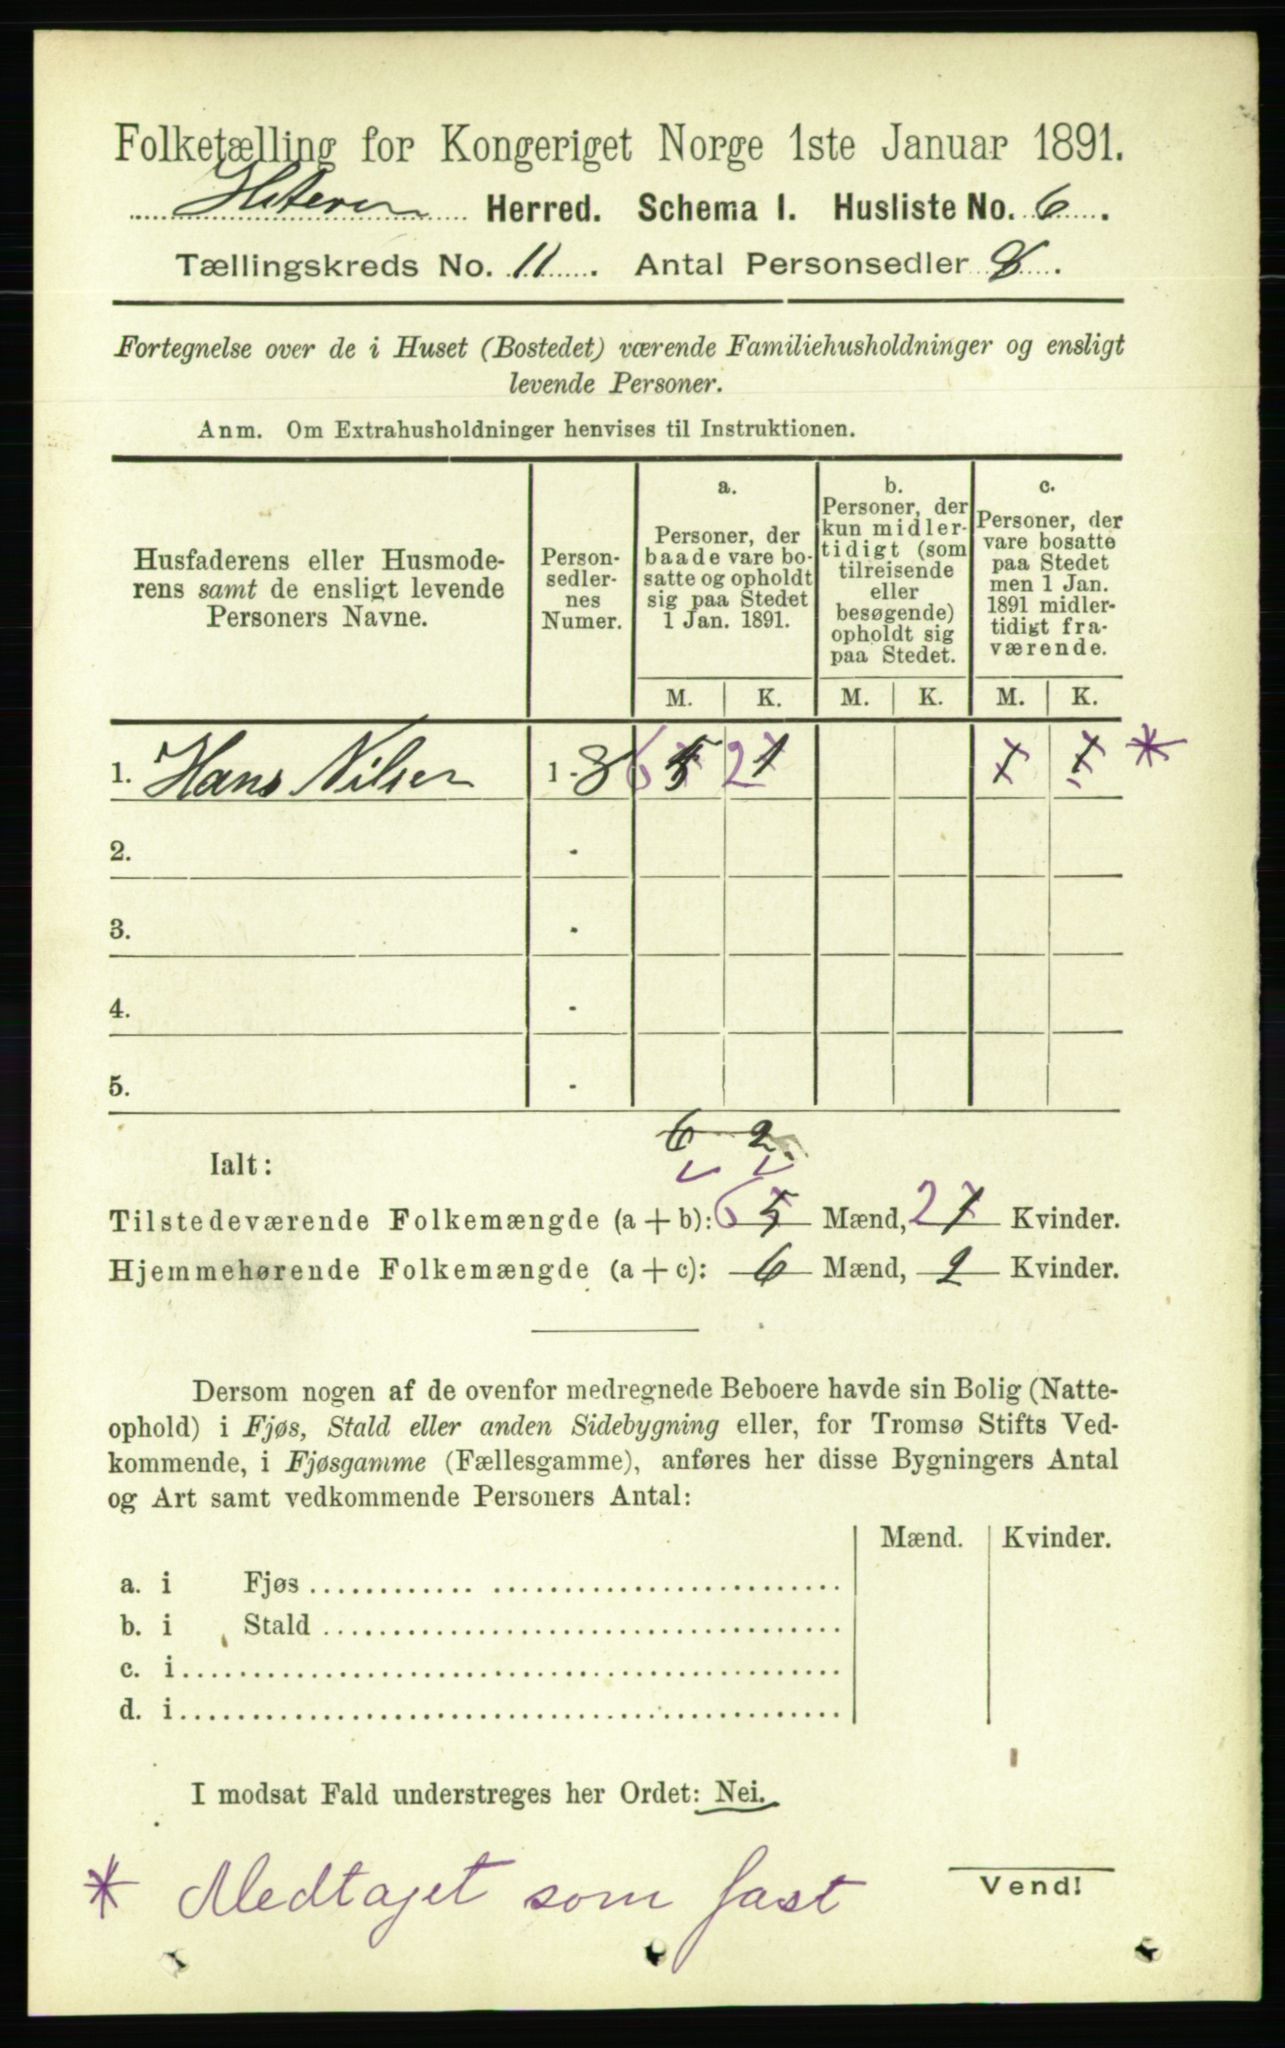 Folketælling for Kongeriget Norge 1ste Januar 1891.
Hiteren Herred. Schema I. Husliste No. 6.
Tællingskreds No. 11. Antal Personsedler 8.
Fortegnelse over de i Huset (Bostedet) værende Familiehusholdninger og ensligt
levende Personer.
Anm. Om Extrahusholdninger henvises til Instruktionen.
Husfaderens eller Husmode-
rens samt de ensligt levende
Personers Navne.
Person-
sedler-
nes
Numer.
a.
Personer, der
baade vare bo-
satte og opholdt
sig paa Stedet
1 Jan. 1891.
b.
Personer, der
kun midler-
tidigt (som
tilreisende
eller
besøgende)
opholdt sig
paa Stedet.
c.
Personer, der
vare bosatte
paa Stedet
men 1 Jan.
1891 midler-
tidigt fra-
værende.
M. K. M. K. M. K.
1. Hans Nilsen 1 - 8 6 5 2 1 1 1 *
2. -
3. -
4. -
5. -
6 - 2.
Ialt:
Tilstedeværende Folkemængde (a + b): 6 5 Mænd, 2 1 Kvinder.
Hjemmehørende Folkemængde (a + c): 6 Mænd, 2 Kvinder.
Dersom nogen af de ovenfor medregnede Beboere havde sin Bolig (Natte-
ophold) i Fjøs, Stald eller anden Sidebygning eller, for Tromsø Stifts Ved-
kommende, i Fjøsgamme (Fællesgamme), anføres her disse Bygningers Antal
og Art samt vedkommende Personers Antal:
Mænd. Kvinder.
a. i Fjøs
b. i Stald
c. i
d. i
I modsat Fald understreges her Ordet: Nei.
* Medtaget som fast
Vend!